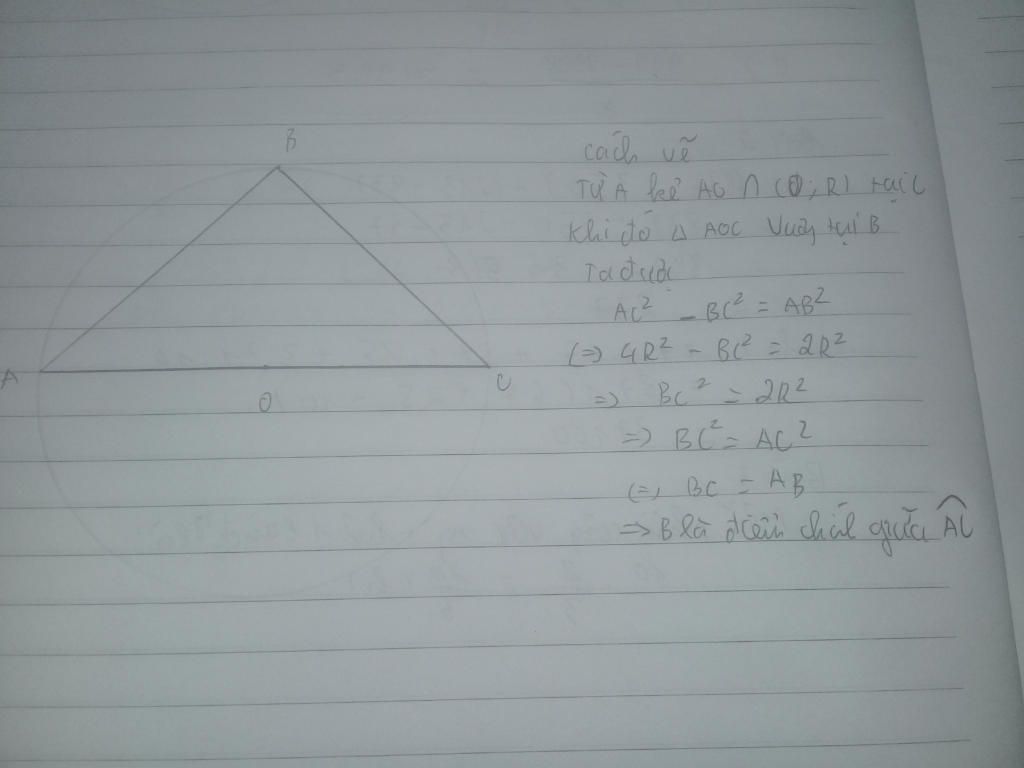 B
A
O
C
Cách vẽ
Từ A kẻ AO ∩ (O; R) tại C
Khi đó △ AOC Vuông tại B
Ta được
AC² - BC² = AB²
(=) 4R² - BC² = 2R²
=) BC² = 2R²
=) BC² = AC²
(=) BC = AB
=> B là điểm chính giữa AC